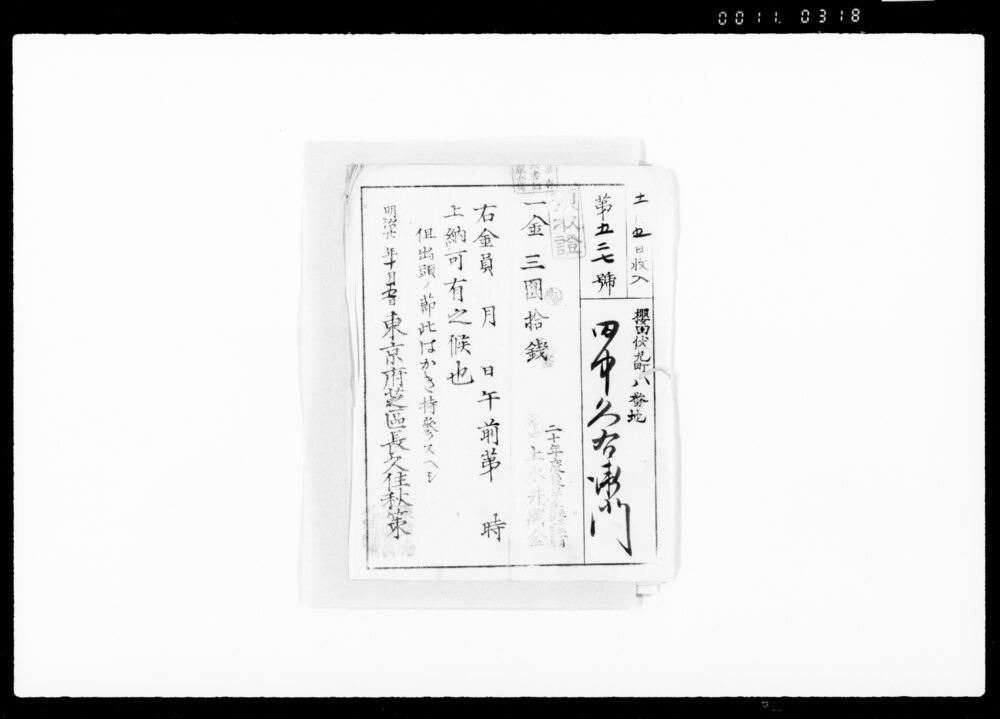 0011.0318
土 月五日收入
第五二七號
櫻田伏見町八番地
田中久右衛門
領收證
一金三圓拾錢
二十年度
上水井戱金
右金員 月 日午前第 時
上納可有之候也
但出頭ノ節此はかき持參スヘシ
明治廿年十月五日東京府芝區長久住秋策